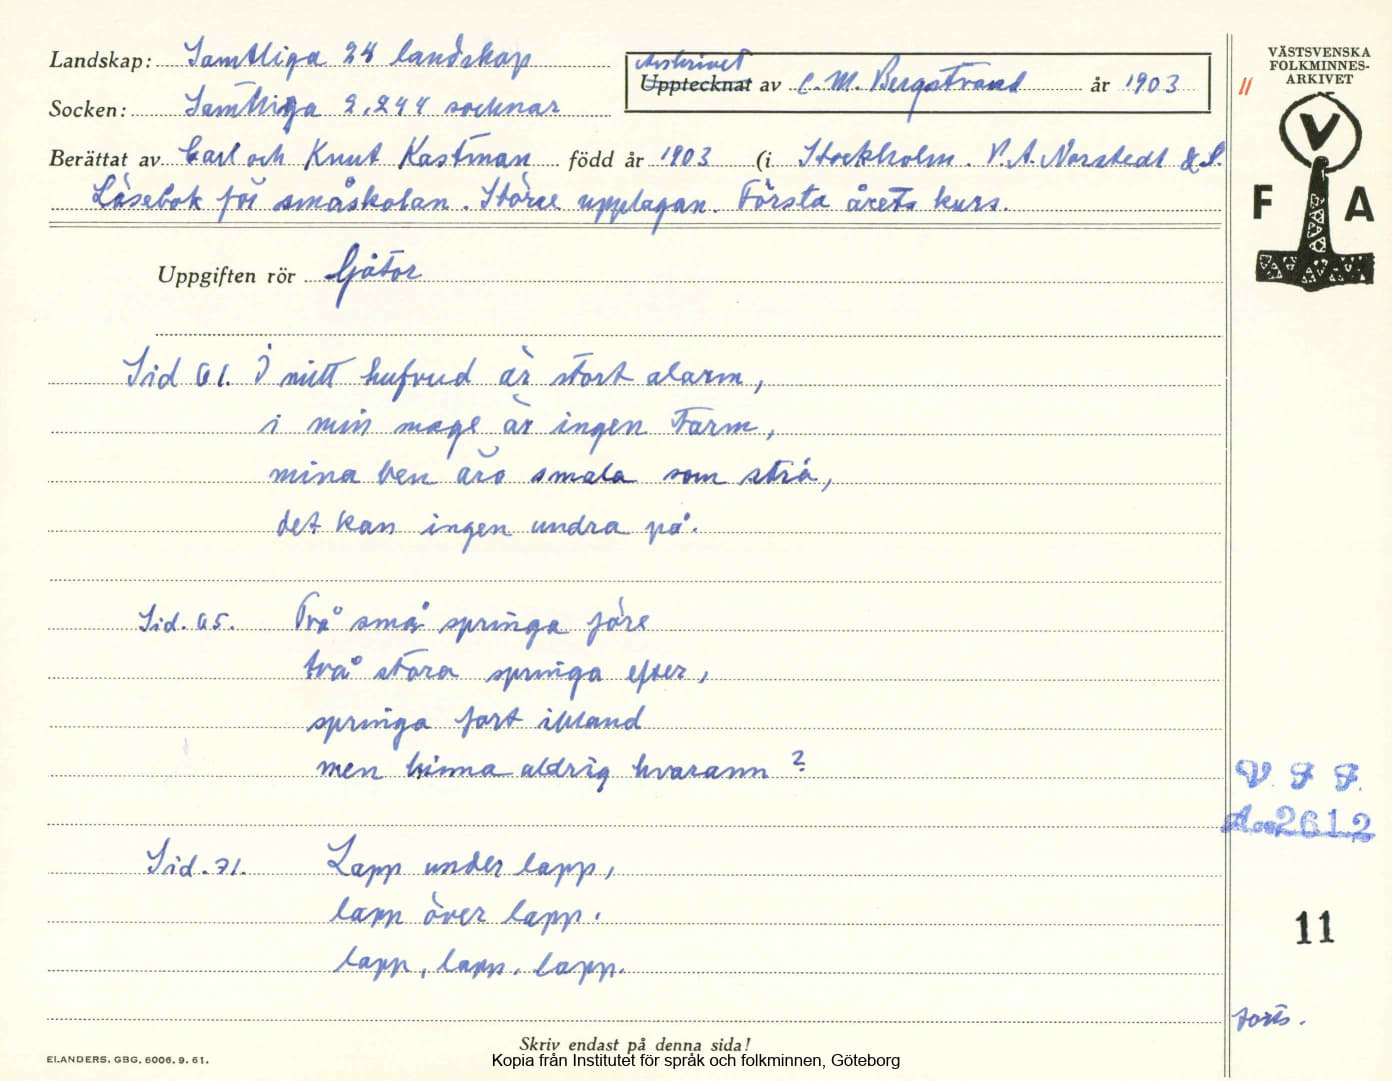 Landskap: Samtliga 24 landskap
Socken: Samtliga 2.244 socknar
Avskrivet
Upptecknat av C. M. Bergstrand år 1903
Berättat av Carl och Knut Kastman född år 1903 (i Stockholm. P. A. Norstedt & S.
Läsebok för småskolan. Större upplagan. Första årets kurs.
Uppgiften rör Gåtor
Sid 61. I mitt hufvud är stort alarm,
i min mage är ingen tarm,
mina ben äro smala som strå,
det kan ingen undra på.
Sid. 65. Två små springa före
två stora springa efter,
springa fort ibland
men hinna aldrig hvarann ?
Sid. 71. Lapp under lapp,
lapp över lapp.
lapp, lapp, lapp.
Skriv endast på denna sida!
ELANDERS, GBG. 6006. 9. 61.
Kopia från Institutet för språk och folkminnen, Göteborg
11
VÄSTSVENSKA
FOLKMINNES-
ARKIVET
V
F A
V. F. F.
Acc 2612
11
forts.